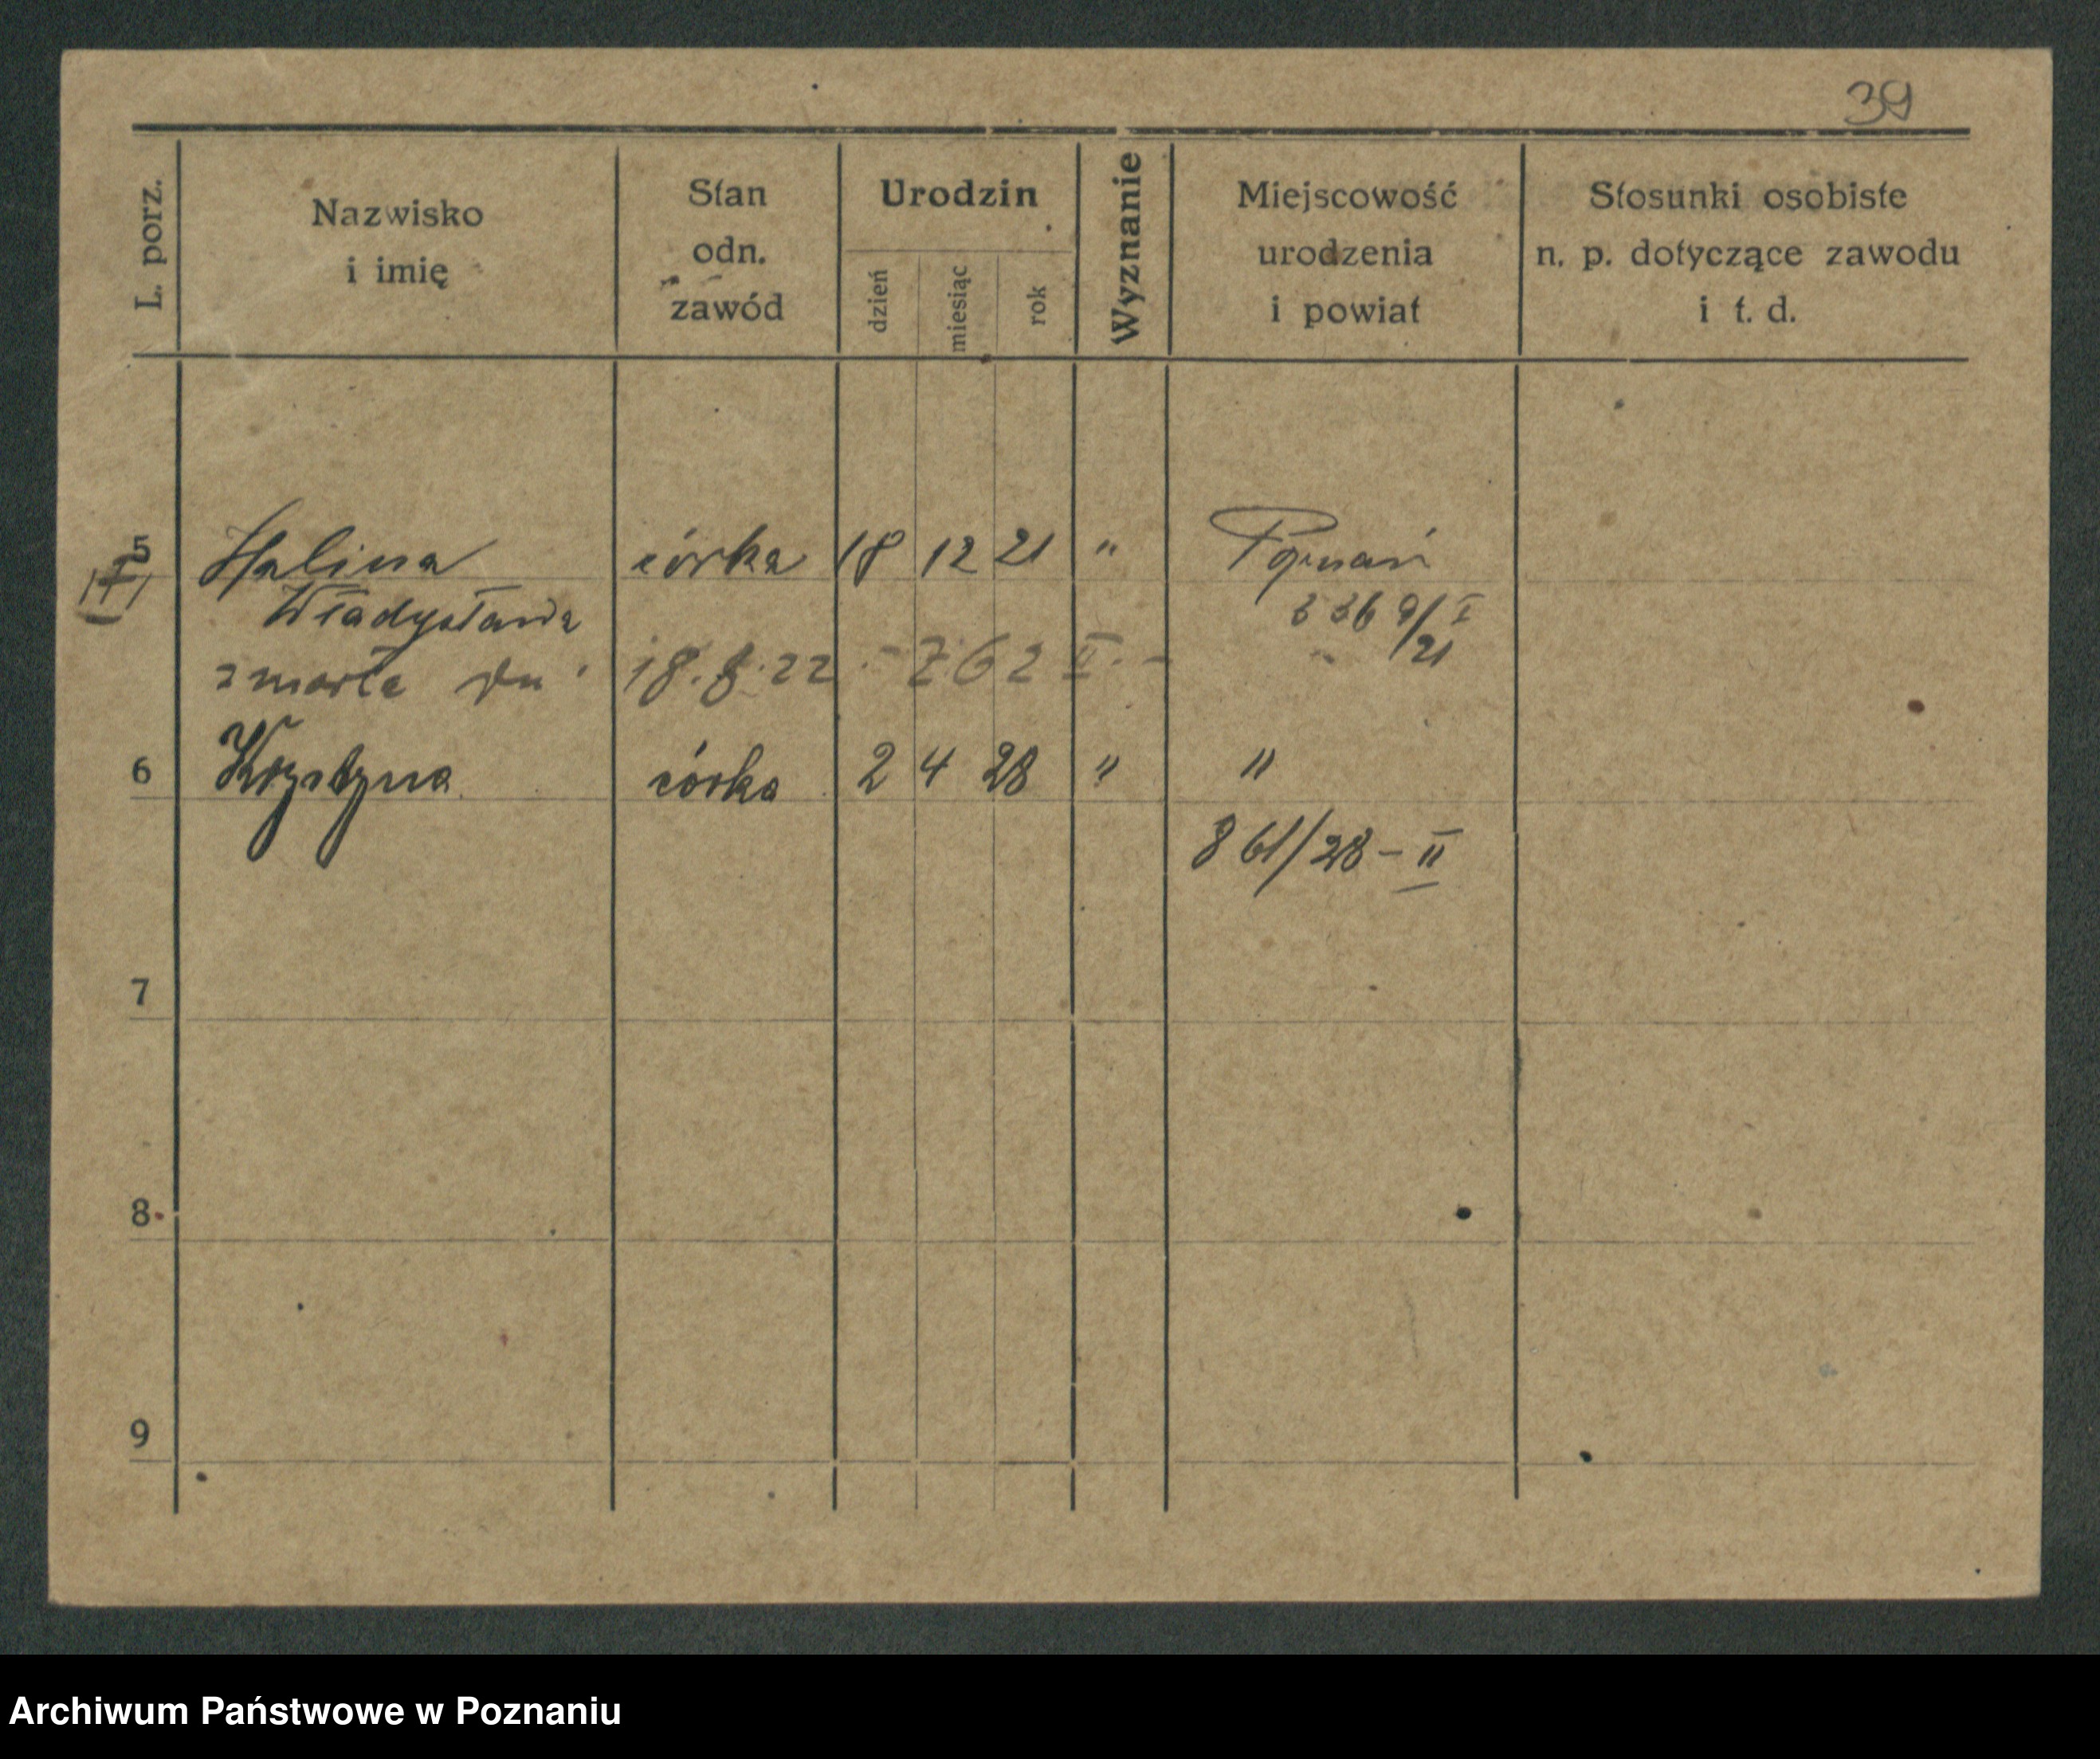 39
L. porz.
Nazwisko
i imię
Stan
odn.
zawód
Urodzin
dzień
miesiąc
rok
Wyznanie
Miejscowość
urodzenia
i powiat
Stosunki osobiste
n. p. dotyczące zawodu
i t. d.
5 Halina córka 18 12 21 " Poznań
Władysława 3369/I
21
zmarła dn. 18.8.22. - 762 II. -
6 Krystyna córka 2 4 28 " "
861/28 - II
7
8
9
Archiwum Państwowe w Poznaniu